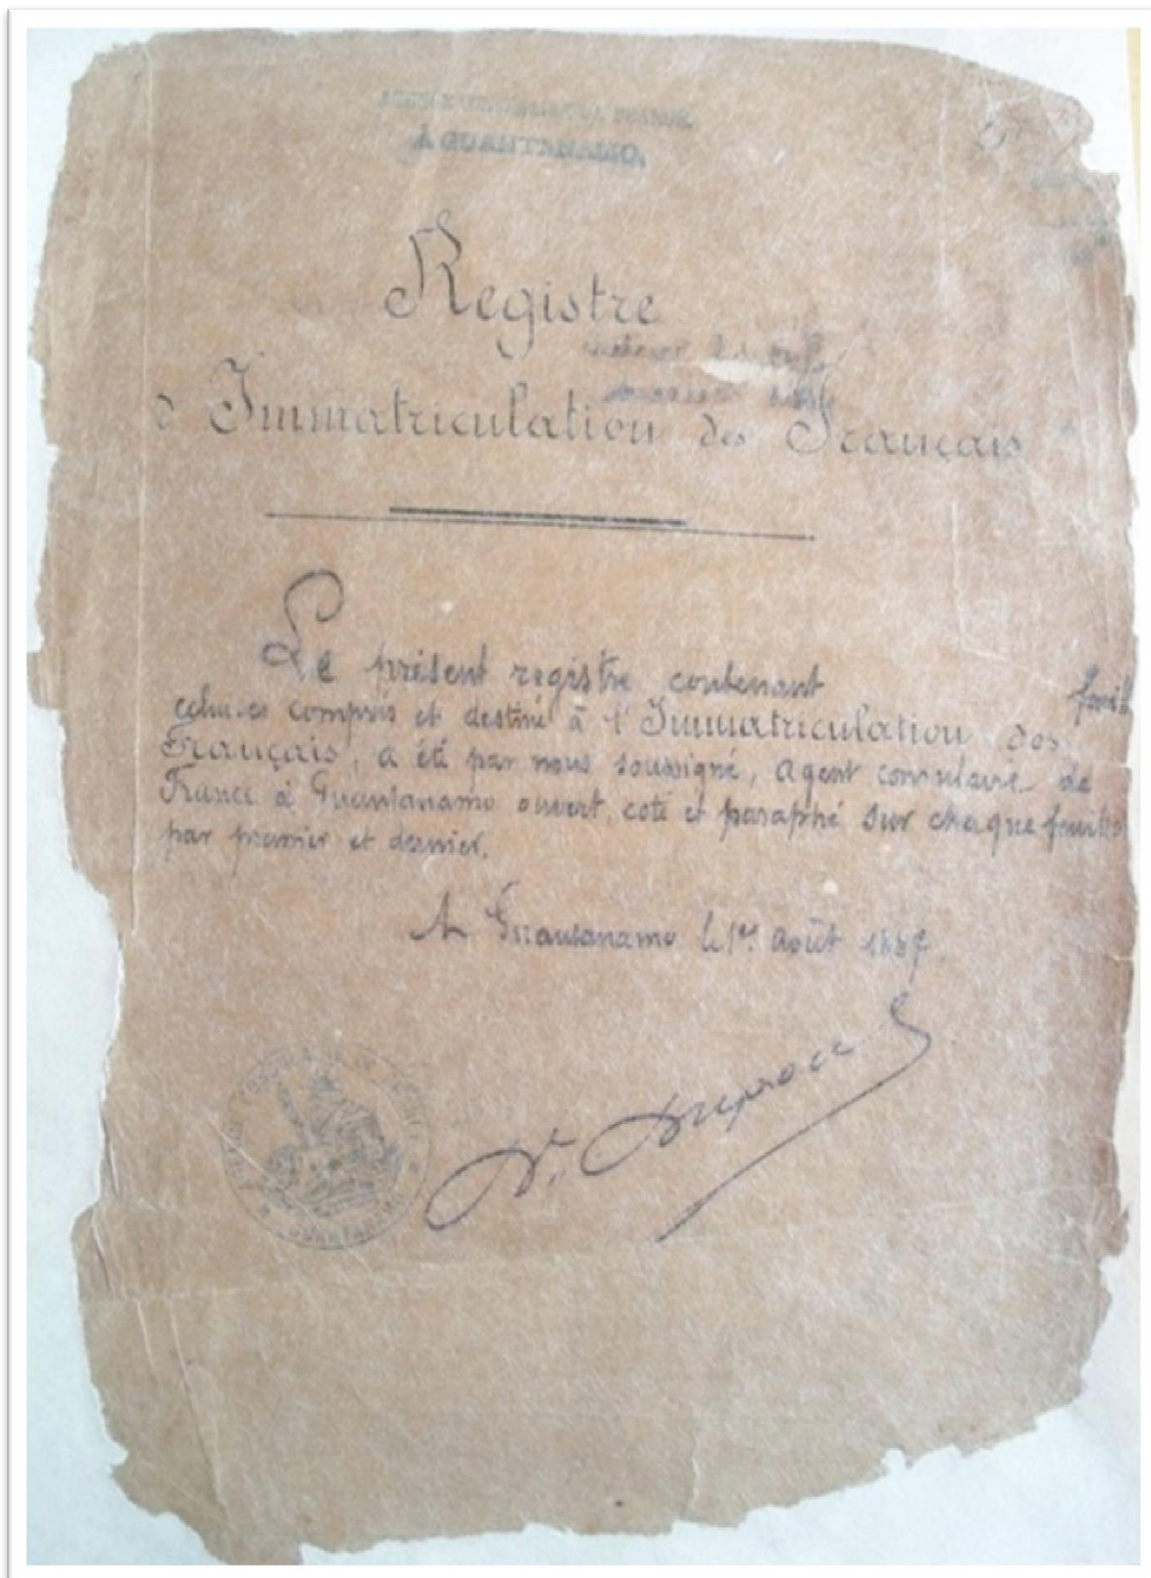 À GUANTANAMO.
Registre
d'Immatriculation des Français
Le présent registre contenant feuil
celui-ci compris et destiné à l'Immatriculation des
Français, a été par nous soussigné, agent consulaire de
France à Guantanamo ouvert, coté et paraphé sur chaque feuillet
par premier et dernier.
A Guantanamo le 1er Août 1887.